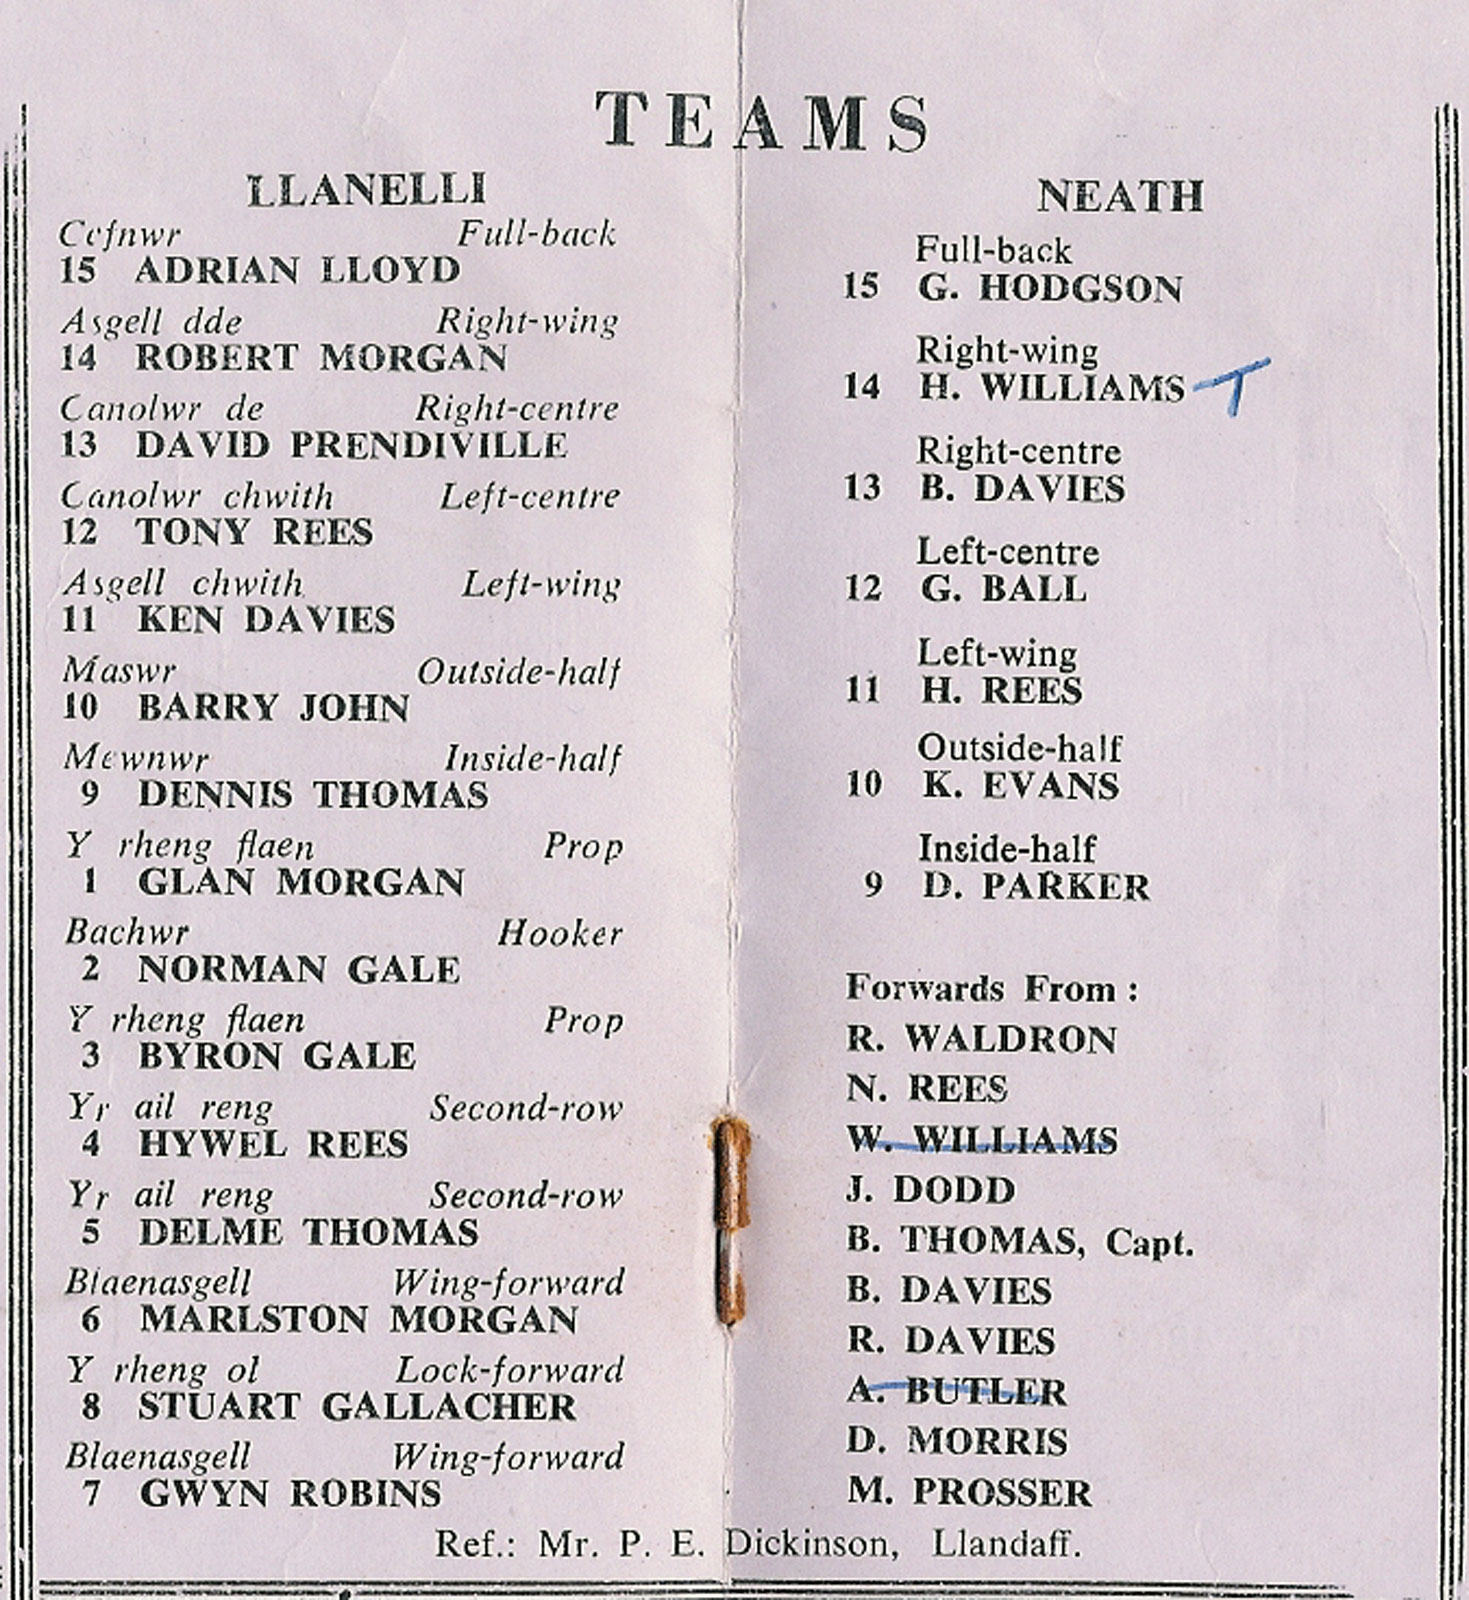 TEAMS
LLANELLI
Cefnwr Full-back
15 ADRIAN LLOYD
Asgell dde Right-wing
14 ROBERT MORGAN
Canolwr de Right-centre
13 DAVID PRENDIVILLE
Canolwr chwith Left-centre
12 TONY REES
Asgell chwith Left-wing
11 KEN DAVIES
Maswr Outside-half
10 BARRY JOHN
Mewnwr Inside-half
9 DENNIS THOMAS
Y rheng flaen Prop
1 GLAN MORGAN
Bachwr Hooker
2 NORMAN GALE
Y rheng flaen Prop
3 BYRON GALE
Yr ail reng Second-row
4 HYWEL REES
Yr ail reng Second-row
5 DELME THOMAS
Blaenasgell Wing-forward
6 MARLSTON MORGAN
Y rheng ol Lock-forward
8 STUART GALLACHER
Blaenasgell Wing-forward
7 GWYN ROBINS
NEATH
Full-back
15 G. HODGSON
Right-wing
14 H. WILLIAMS - T
Right-centre
13 B. DAVIES
Left-centre
12 G. BALL
Left-wing
11 H. REES
Outside-half
10 K. EVANS
Inside-half
9 D. PARKER
Forwards From :
R. WALDRON
N. REES
W. WILLIAMS
J. DODD
B. THOMAS, Capt.
B. DAVIES
R. DAVIES
A. BUTLER
D. MORRIS
M. PROSSER
Ref.: Mr. P. E. Dickinson, Llandaff.